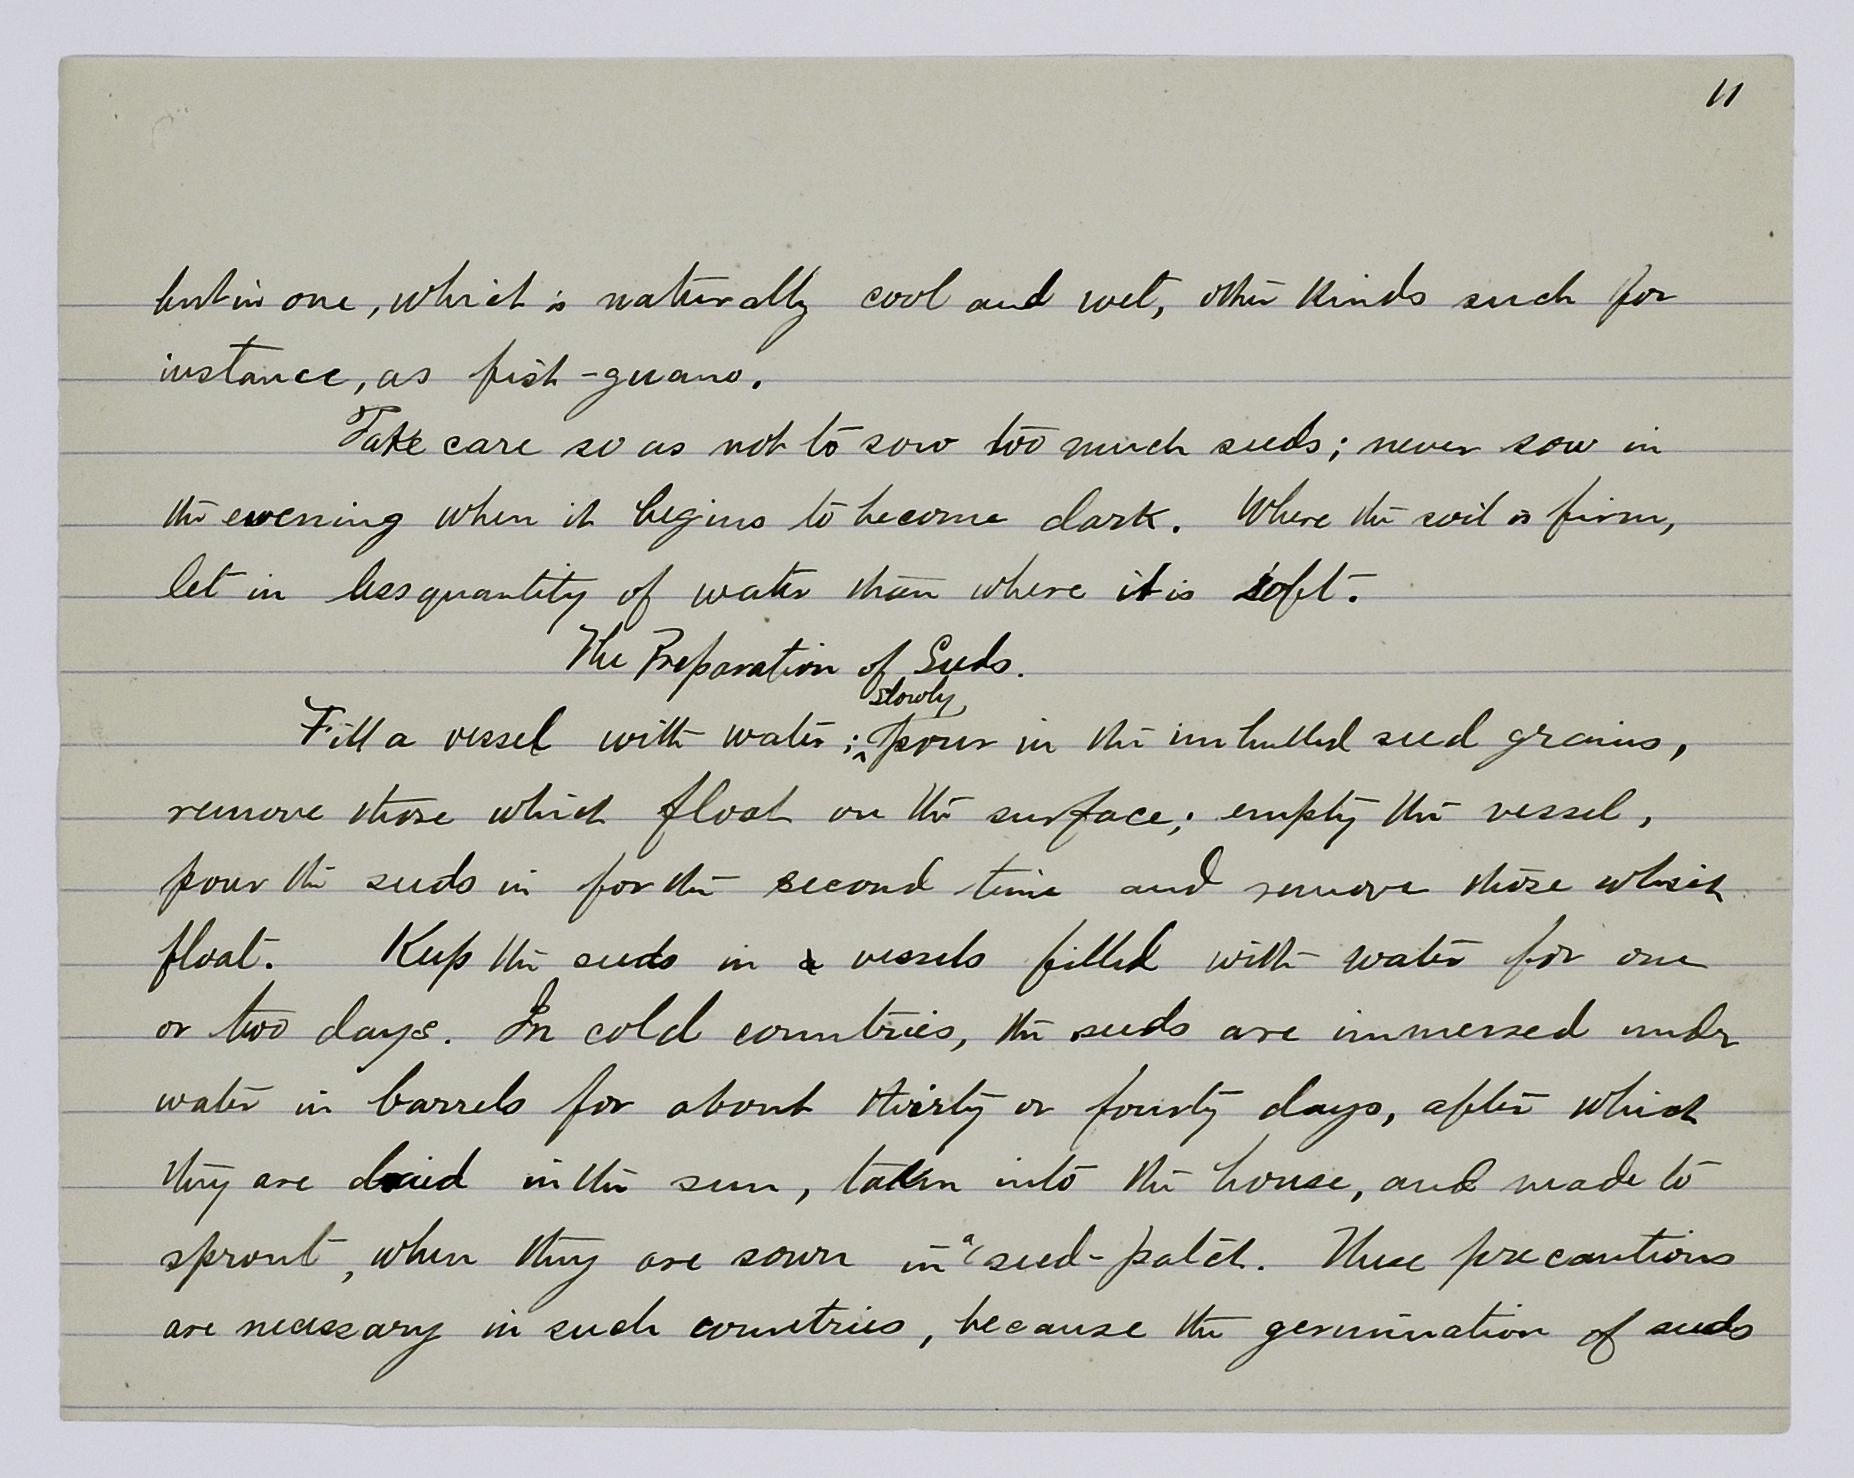 11
but in one, which is naturally cool and wet, other kinds such for
instance, as fish-guano.
Take care so as not to sow too much seeds; never sow in
the evening when it begins to become dark. Where the soil is firm,
let in less quantity of water than where it is soft.
The Preparation of Seeds.
slowly
Fill a vessel with water; pour in the unhulled seed grains,
remove those which float on the surface; empty the vessel,
pour the seeds in for the second time and remove those which
float. Keep the seeds in a vessels filled with water for one
or two days. In cold countries, the seeds are immersed under
water in barrels for about thirty or fourty days, after which
they are dried in the sun, taken into the house, and made to
sprout, when they are sown in a seed-patch. These precautions
are necessary in such countries, because the germination of seeds